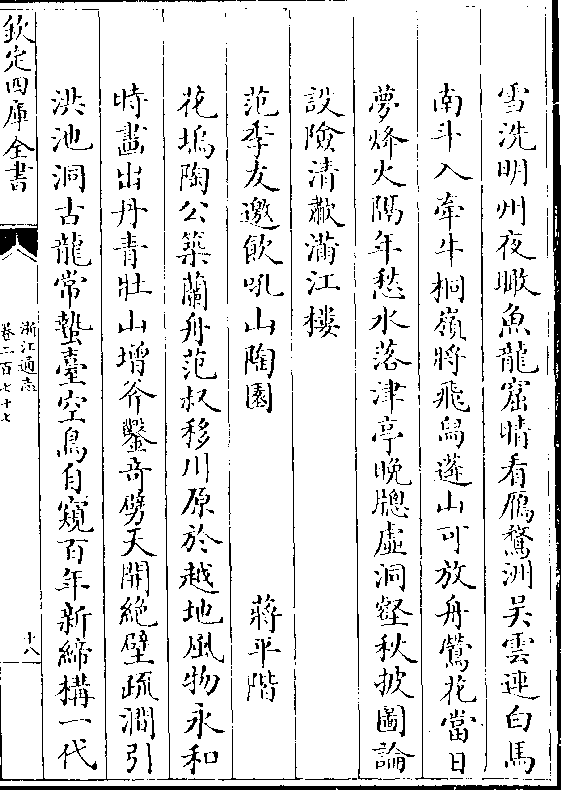 雪洗明州夜瞰魚龍窟晴看鴈鶩洲吳雲連白馬
南斗入牽牛桐嶺將飛舄蓬山可放舟鶯花當日
夢烽火隔年愁水落津亭晩牕虛洞壑秋披圖論
設險清歗滿江樓
范季友邀飲吼山陶園　蔣平階
花塢陶公築蘭舟范叔移川原於越地風物永和
時畫出丹青壯山增斧鑿奇劈天開絶壁疏澗引
洪池洞古龍常蟄臺空鳥自窺百年新締構一代
欽定四庫全書
浙江通志
卷二百七十七
十八